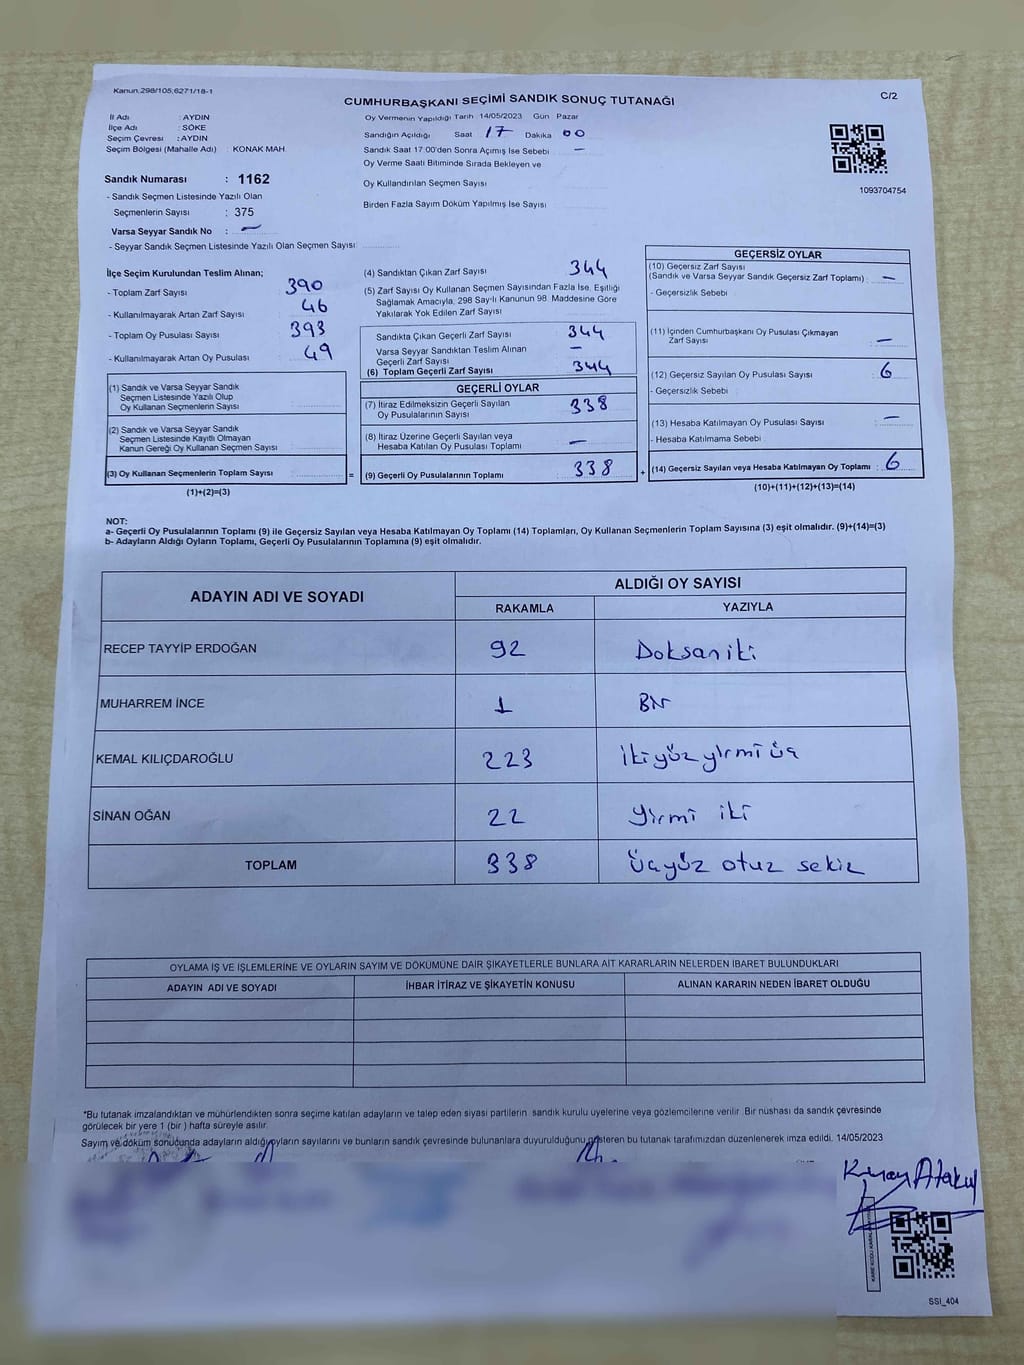 Kanun.298/105,6271/18-1
C/2
CUMHURBAŞKANI SEÇİMİ SANDIK SONUÇ TUTANAĞI
İl Adı : AYDIN
İlçe Adı : SÖKE
Seçim Çevresi : AYDIN
Seçim Bölgesi (Mahalle Adı) : KONAK MAH.
Oy Vermenin Yapıldığı Tarih 14/05/2023 Gün Pazar
Sandığın Açıldığı Saat 17 Dakika 00
Sandık Saat 17:00'den Sonra Açımış İse Sebebi —
Oy Verme Saati Bitiminde Sırada Bekleyen ve
Oy Kullandırılan Seçmen Sayısı
Birden Fazla Sayım Döküm Yapılmış İse Sayısı
1093704754
Sandık Numarası : 1162
- Sandık Seçmen Listesinde Yazılı Olan
Seçmenlerin Sayısı : 375
Varsa Seyyar Sandık No : —
- Seyyar Sandık Seçmen Listesinde Yazılı Olan Seçmen Sayısı
İlçe Seçim Kurulundan Teslim Alınan;
- Toplam Zarf Sayısı 390
- Kullanılmayarak Artan Zarf Sayısı 46
- Toplam Oy Pusulası Sayısı 393
- Kullanılmayarak Artan Oy Pusulası 49
(1) Sandık ve Varsa Seyyar Sandık
Seçmen Listesinde Yazılı Olup
Oy Kullanan Seçmenlerin Sayısı
(2) Sandık ve Varsa Seyyar Sandık
Seçmen Listesinde Kayıtlı Olmayan
Kanun Gereği Oy Kullanan Seçmen Sayısı
(3) Oy Kullanan Seçmenlerin Toplam Sayısı =
(1)+(2)=(3)
(4) Sandıktan Çıkan Zarf Sayısı 344
(5) Zarf Sayısı Oy Kullanan Seçmen Sayısından Fazla İse, Eşitliği
Sağlamak Amacıyla, 298 Sayılı Kanunun 98. Maddesine Göre
Yakılarak Yok Edilen Zarf Sayısı
Sandıkta Çıkan Geçerli Zarf Sayısı 344
Varsa Seyyar Sandıktan Teslim Alınan
Geçerli Zarf Sayısı —
(6) Toplam Geçerli Zarf Sayısı 344
GEÇERLİ OYLAR
(7) İtiraz Edilmeksizin Geçerli Sayılan
Oy Pusulalarının Sayısı 338
(8) İtiraz Üzerine Geçerli Sayılan veya
Hesaba Katılan Oy Pusulası Toplamı —
(9) Geçerli Oy Pusulalarının Toplamı 338 +
GEÇERSİZ OYLAR
(10) Geçersiz Zarf Sayısı
(Sandık ve Varsa Seyyar Sandık Geçersiz Zarf Toplamı) : —
- Geçersizlik Sebebi
(11) İçinden Cumhurbaşkanı Oy Pusulası Çıkmayan
Zarf Sayısı : —
(12) Geçersiz Sayılan Oy Pusulası Sayısı : 6
- Geçersizlik Sebebi
(13) Hesaba Katılmayan Oy Pusulası Sayısı : —
- Hesaba Katılmama Sebebi
(14) Geçersiz Sayılan veya Hesaba Katılmayan Oy Toplamı : 6
(10)+(11)+(12)+(13)=(14)
NOT:
a- Geçerli Oy Pusulalarının Toplamı (9) ile Geçersiz Sayılan veya Hesaba Katılmayan Oy Toplamı (14) Toplamları, Oy Kullanan Seçmenlerin Toplam Sayısına (3) eşit olmalıdır. (9)+(14)=(3)
b- Adayların Aldığı Oyların Toplamı, Geçerli Oy Pusulalarının Toplamına (9) eşit olmalıdır.
ADAYIN ADI VE SOYADI ALDIĞI OY SAYISI
RAKAMLA YAZIYLA
RECEP TAYYİP ERDOĞAN 92 Doksan iki
MUHARREM İNCE 1 Bir
KEMAL KILIÇDAROĞLU 223 İkiyüz yirmi üç
SİNAN OĞAN 22 Yirmi iki
TOPLAM 338 Üçyüz otuz sekiz
OYLAMA İŞ VE İŞLEMLERİNE VE OYLARIN SAYIM VE DÖKÜMÜNE DAİR ŞİKAYETLERLE BUNLARA AİT KARARLARIN NELERDEN İBARET BULUNDUKLARI
ADAYIN ADI VE SOYADI İHBAR İTİRAZ VE ŞİKAYETİN KONUSU ALINAN KARARIN NEDEN İBARET OLDUĞU
*Bu tutanak imzalandıktan ve mühürlendikten sonra seçime katılan adayların ve talep eden siyasi partilerin sandık kurulu üyelerine veya gözlemcilerine verilir. Bir nüshası da sandık çevresinde
görülecek bir yere 1 (bir) hafta süreyle asılır.
Sayım ve döküm sonucunda adayların aldığı oyların sayılarını ve bunların sandık çevresinde bulunanlara duyurulduğunu gösteren bu tutanak tarafımızdan düzenlenerek imza edildi. 14/05/2023
SSI_404